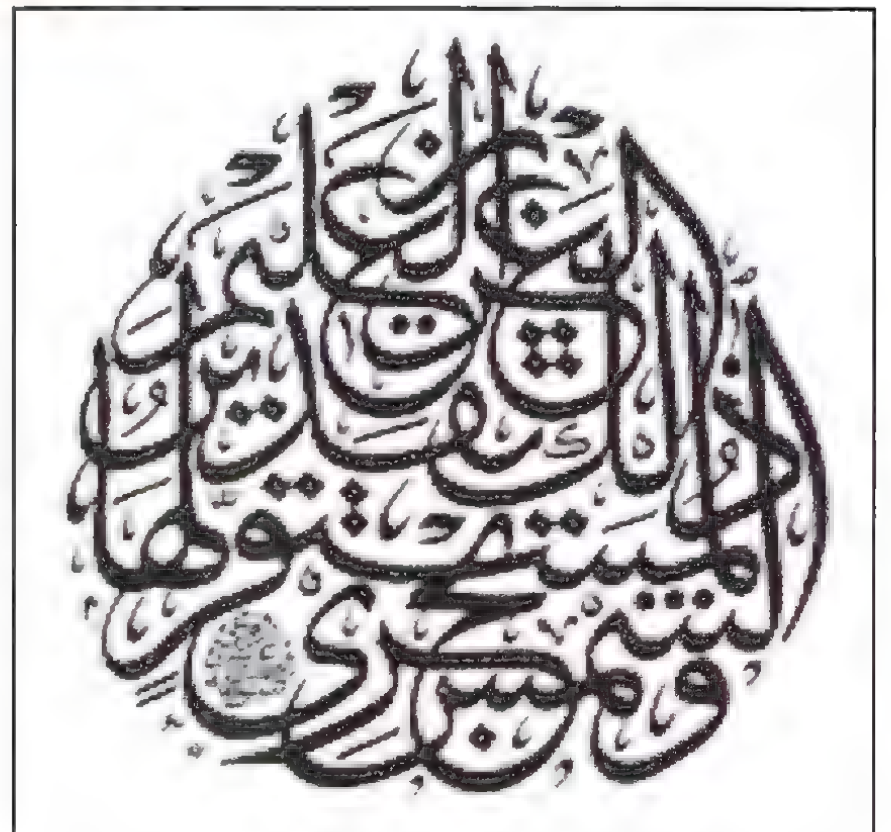 والشمس تجري لمستقر لها ذلك تقدير العزيز العليم